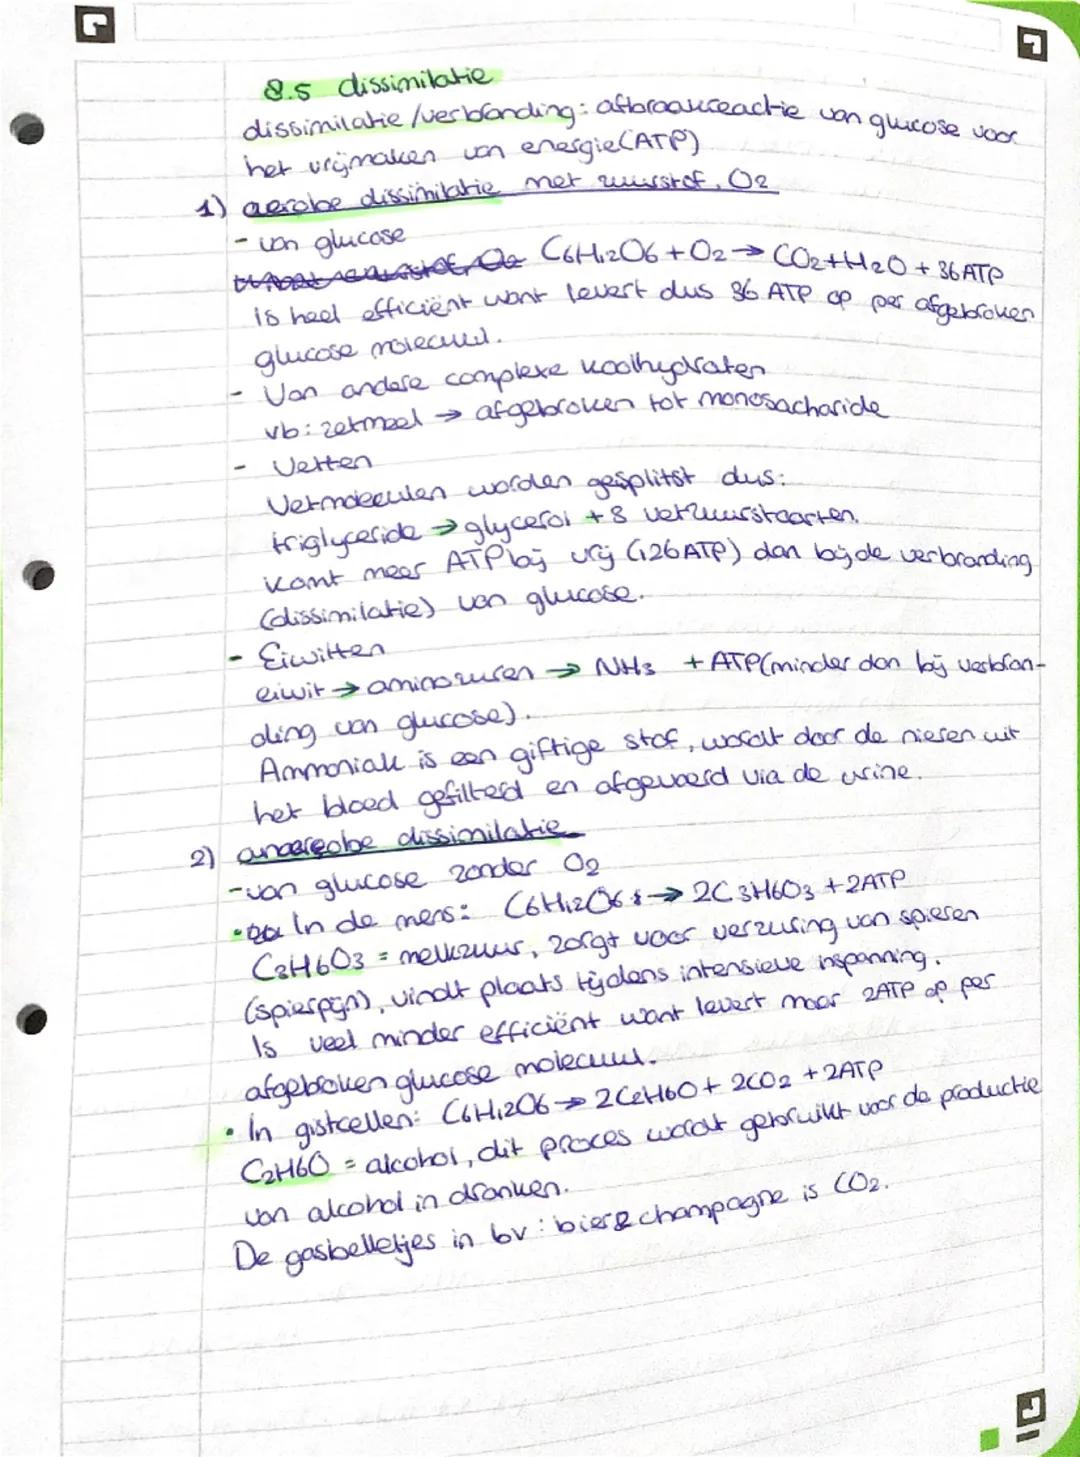 8.5 dissimilatie
dissimilatie/verbranding: afbraakreactie van glucose voor
het vrijmaken van energie(ATP)
1) aerobe dissimilatie met zuurstof, O2
- van glucose
C6H12O6 + O2 → CO2+H2O + 36ATP
is heel efficiënt want levert dus 36 ATP op per afgebroken
glucose molecuul.
- Van andere complexe koolhydraten
vb: zetmeel → afgebroken tot monosacharide
- Vetten
Vetmoleculen worden gesplitst dus:
triglyceride → glycerol + 3 vetzuurstaarten.
Komt meer ATP bij vrij (126ATP) dan bij de verbranding
(dissimilatie) van glucose.
- Eiwitten
eiwit → aminozuren → NH3 + ATP(minder dan bij verbran-
ding van glucose).
Ammoniak is een giftige stof, wordt door de nieren uit
het bloed gefilterd en afgevoerd via de urine.
2) anaerobe dissimilatie
- van glucose zonder O2
• In de mens: C6H12O6 → 2C3H6O3 + 2ATP
C3H6O3 = melkzuur, zorgt voor verzuring van spieren
(spierpijn), vindt plaats tijdens intensieve inspanning.
Is veel minder efficiënt want levert maar 2ATP op per
afgebroken glucose molecuul.
• In gistcellen: C6H12O6 → 2C2H6O + 2CO2 + 2ATP
C2H6O = alcohol, dit proces wordt gebruikt voor de productie
van alcohol in dranken.
De gasbelletjes in bv: bier & champagne is CO2.